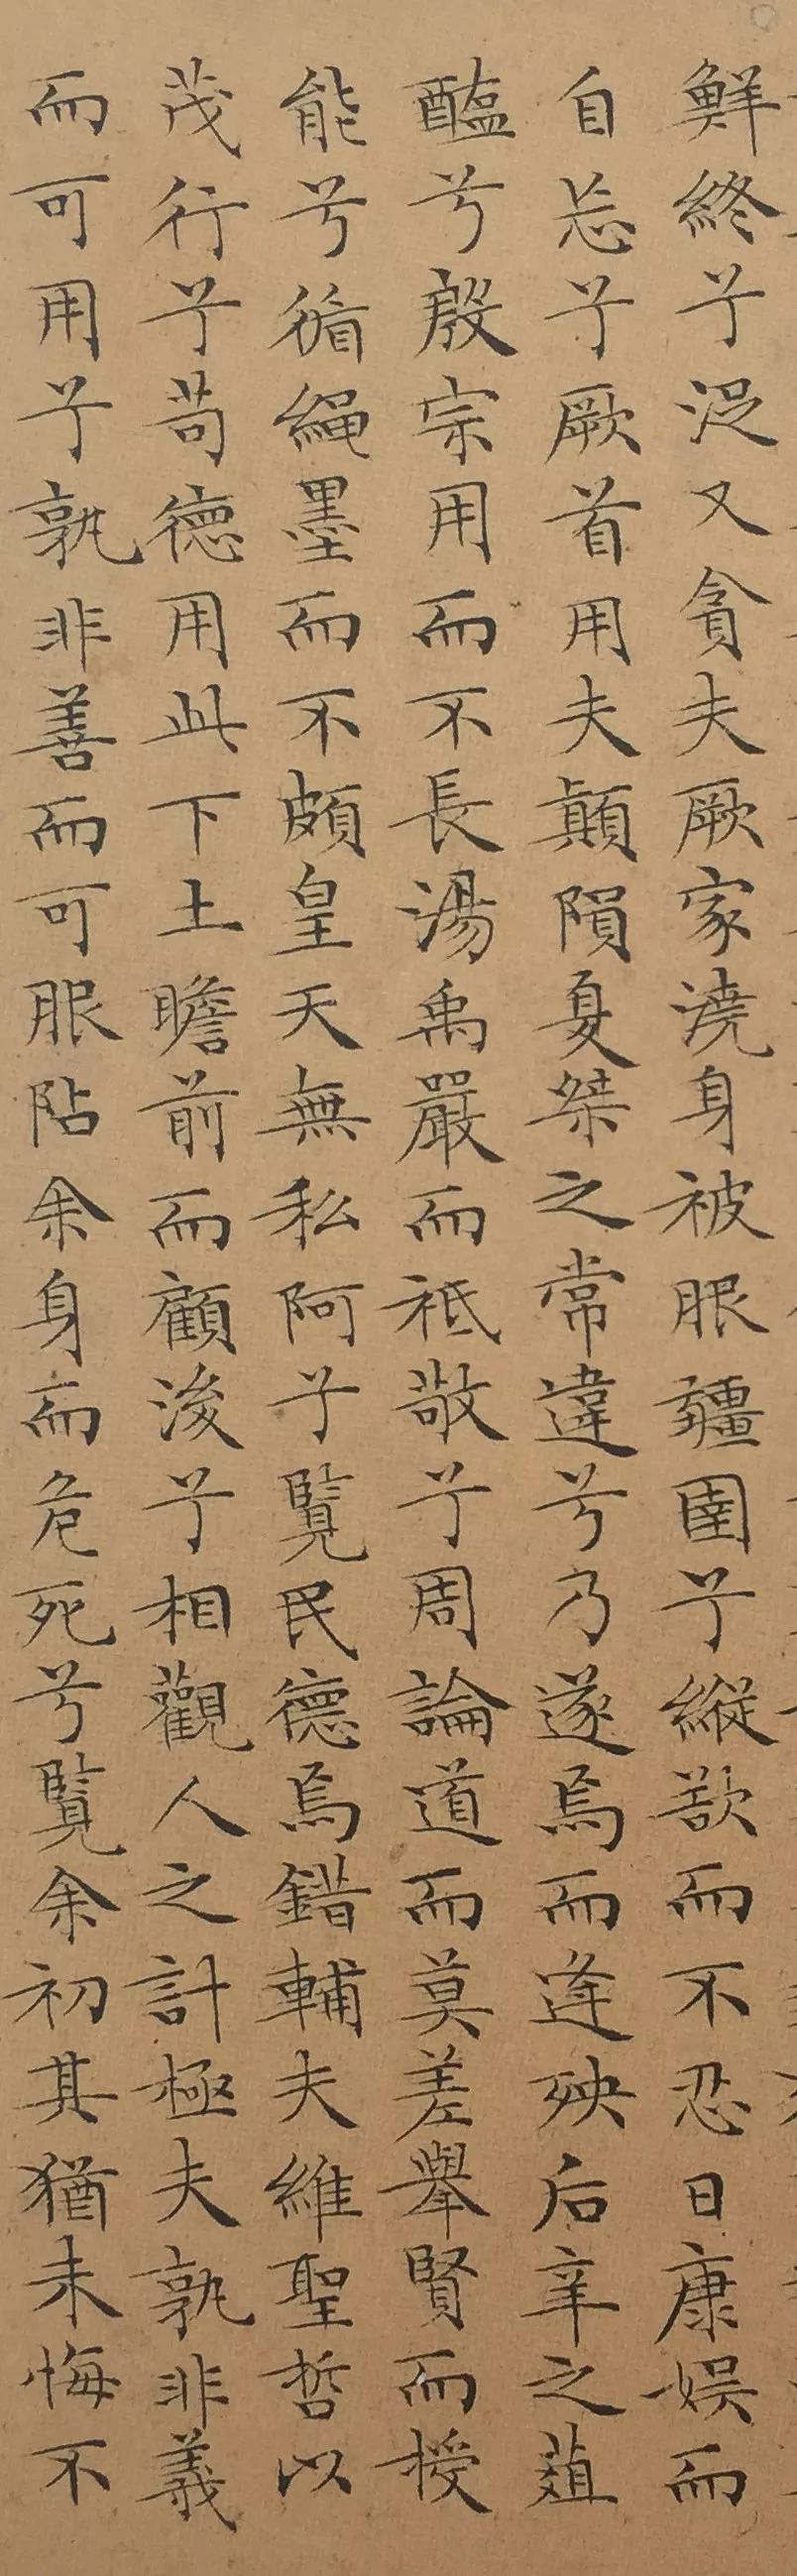 鮮終兮浞又貪夫厥家澆身被服彊圉兮縱欲而不忍日康娛而
自忘兮厥首用夫顛隕夏桀之常違兮乃遂焉而逢殃后辛之葅
醢兮殷宗用而不長湯禹嚴而祗敬兮周論道而莫差舉賢而授
能兮循繩墨而不頗皇天無私阿兮覽民德焉錯輔夫維聖哲以
茂行兮苟德用此下土瞻前而顧後兮相觀人之計極夫孰非義
而可用兮孰非善而可服阽余身而危死兮覽余初其猶未悔不